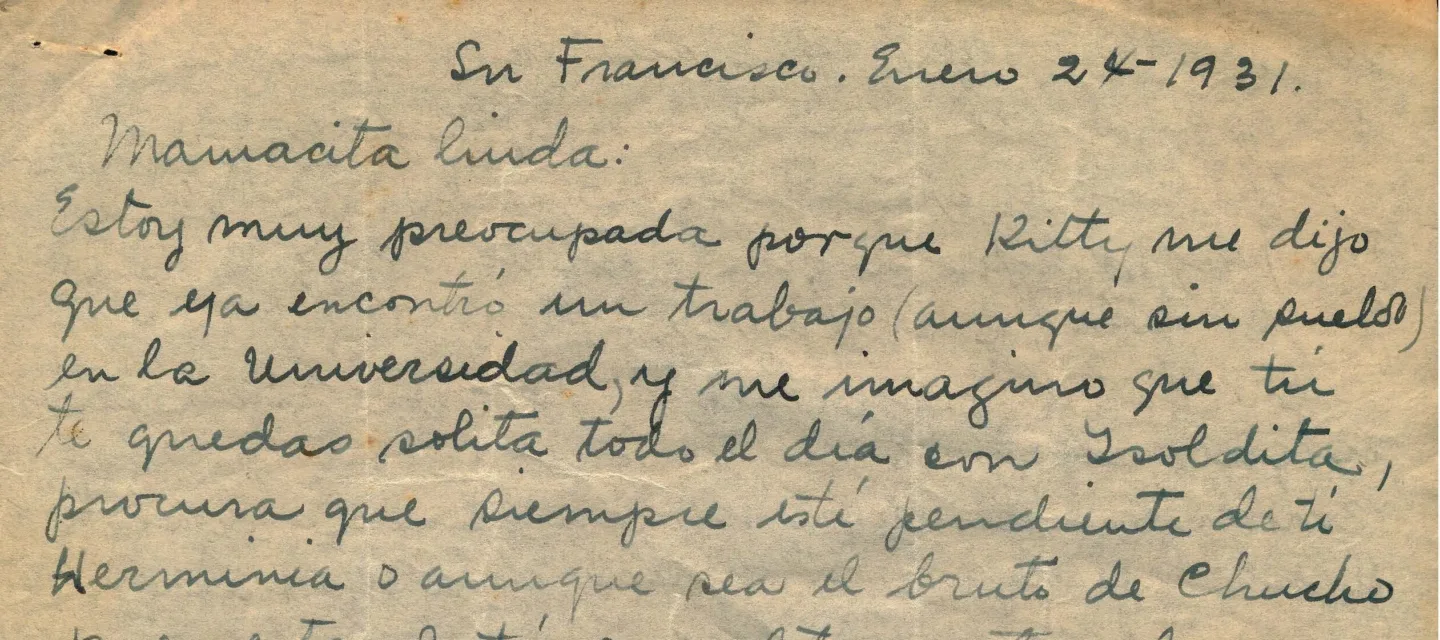 Sn Francisco. Enero 24-1931.
Mamacita linda:
Estoy muy preocupada porque Kitty me dijo
que eya encontró un trabajo (aunque sin sueldo)
en la Universidad, y me imagino que tú
te quedas solita todo el día con Isoldita,
procura que siempre esté pendiente de tí
Herminia o aunque sea el bruto de Chucho